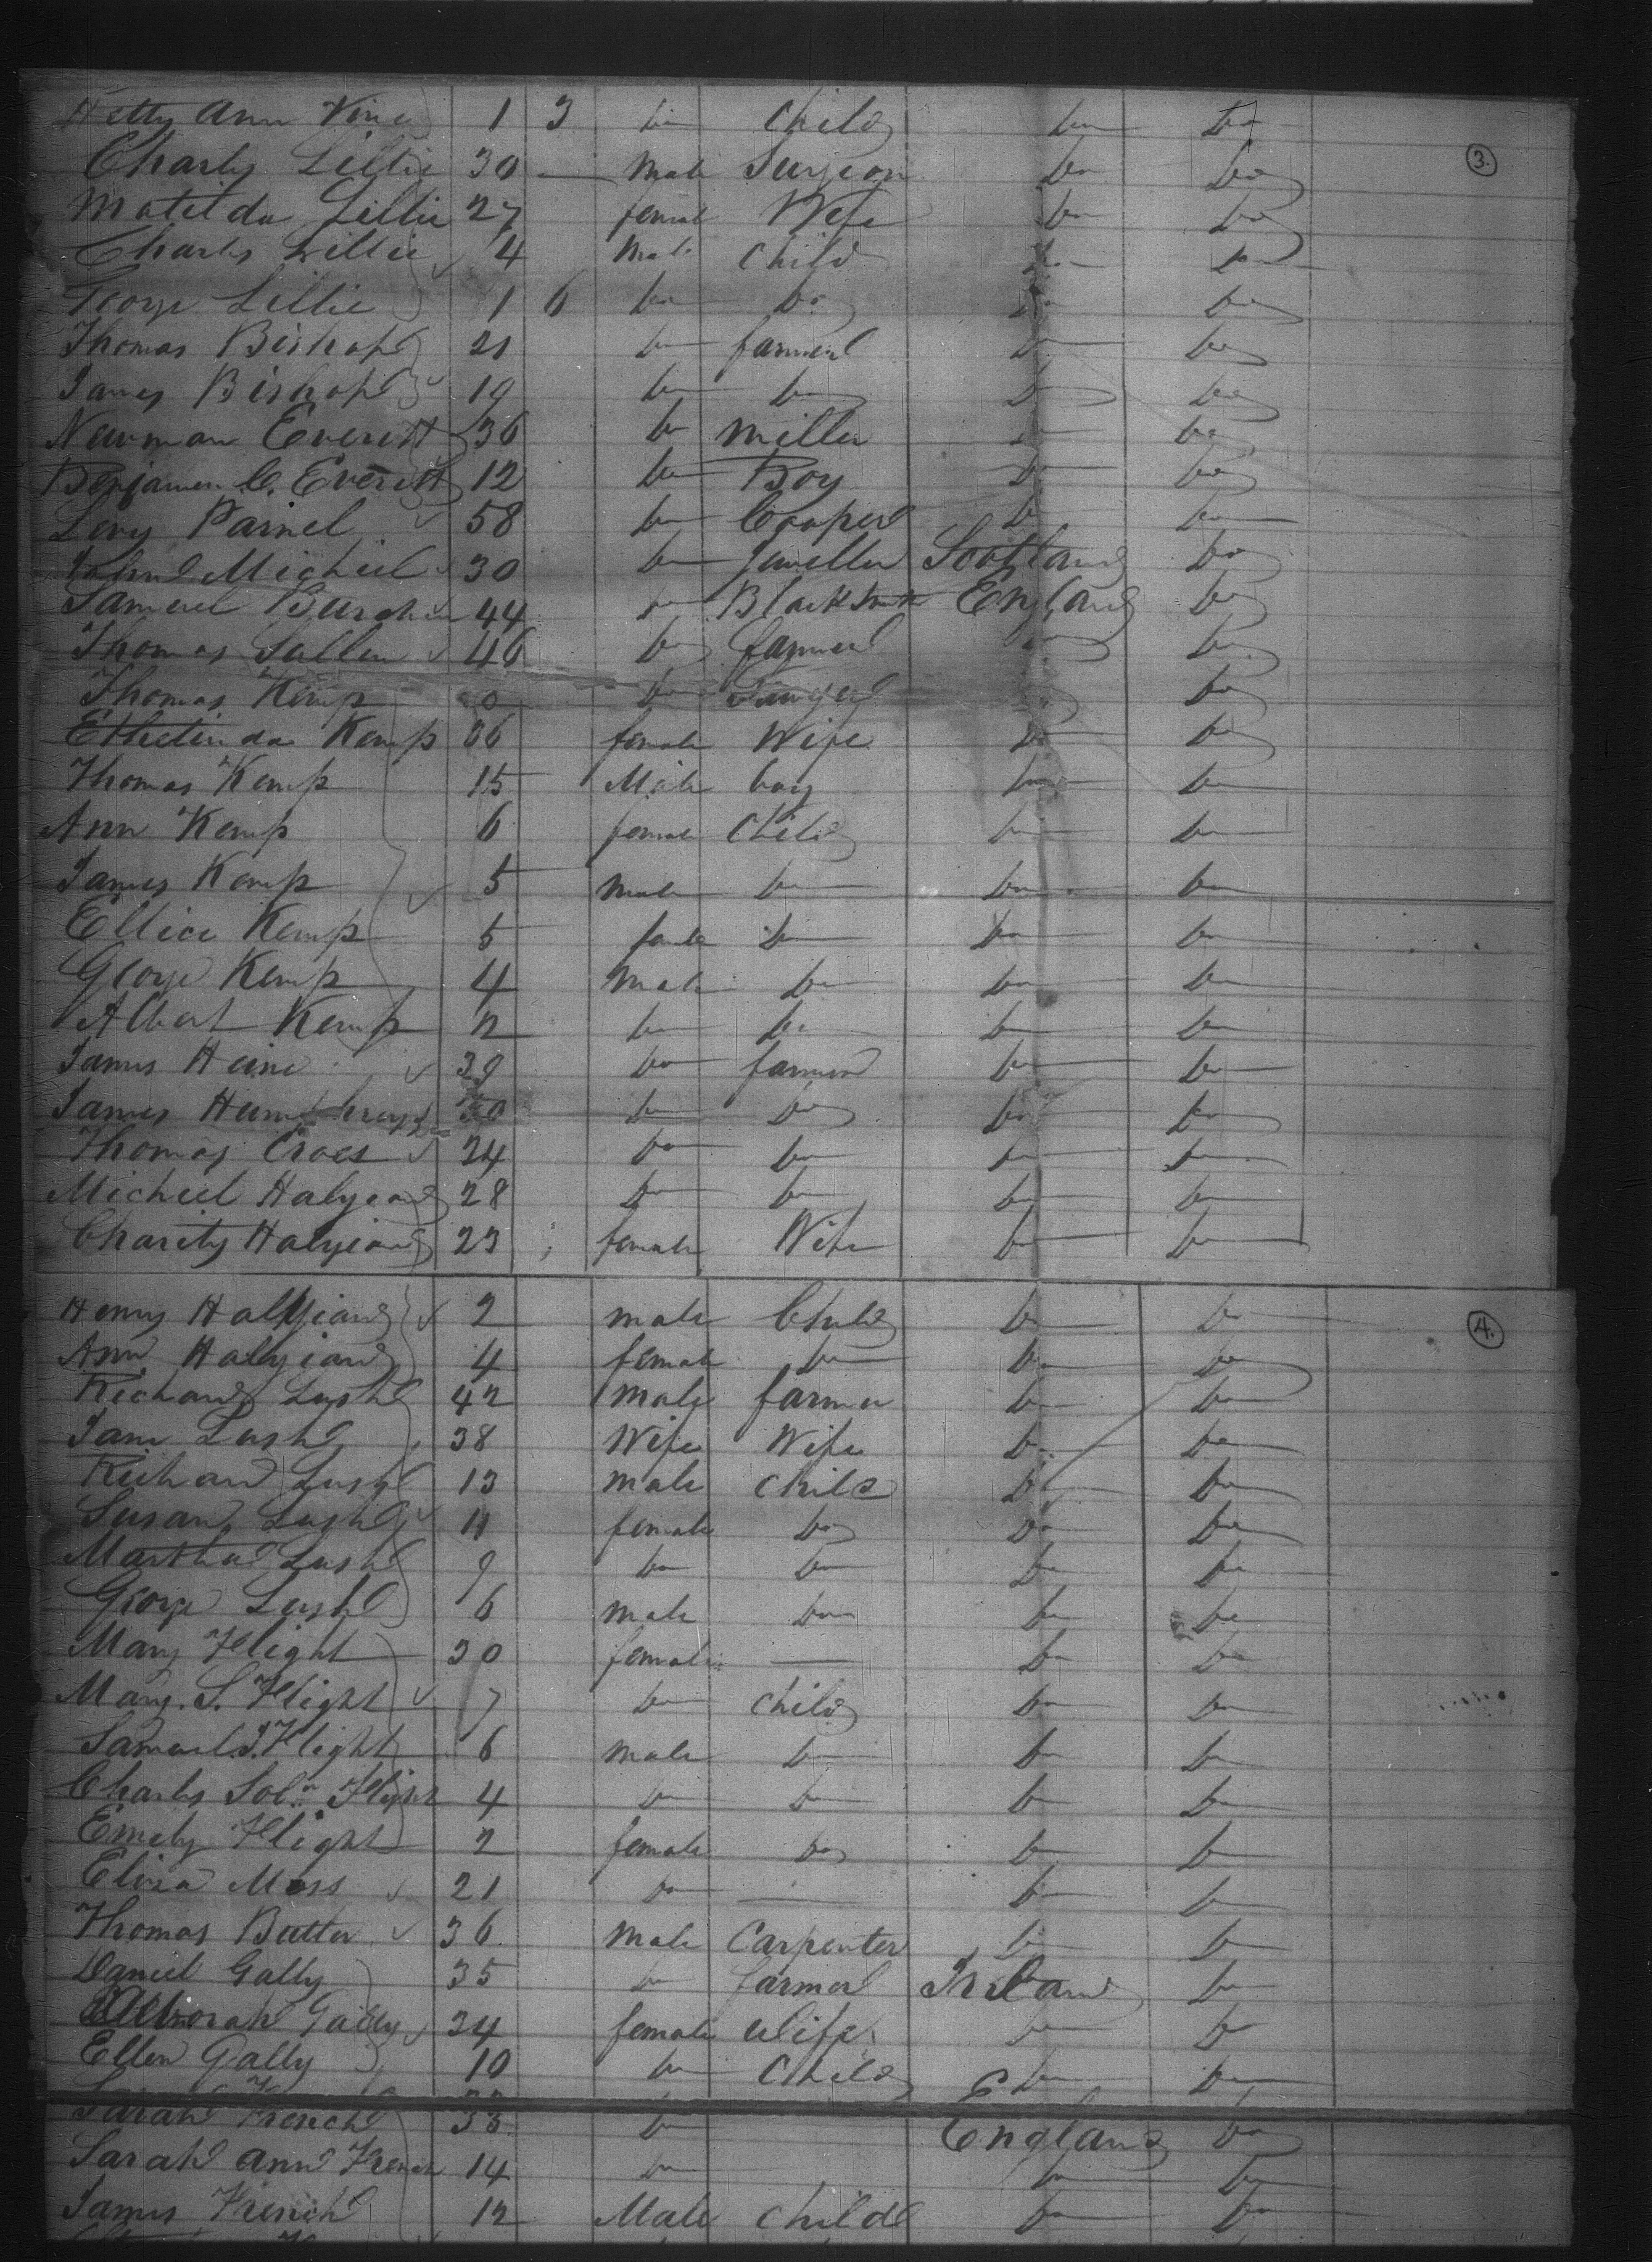 Hetty Ann Vine 1 3 do Child do do
Charls Lillie 30 — Male Surgeon do do
3.
Matilda Lillie 27 female Wife do do
Charls Lillie 4 Male Child do do
George Lillie 1 6 do do do do
Thomas Bishop 21 do farmer do do
James Bishop 19 do do do do
Newman Everitt 36 do Miller do do
Benjamin C. Everitt 12 do Boy do do
Levy Painel 58 do Cooper do do
John Michiel 30 do Jeweller Scotland do
Samuel 44 do Blacksmith England do
Thomas Sallen 46 do farmer do do
Thomas Kemp do do do
Ethelinda Kemp 36 female Wife do do
Thomas Kemp 15 Male boy do do
Ann Kemp 6 female Child do do
James Kemp 5 Male do do do
Ellice Kemp 5 famle do do do
George Kemp 4 Male do do do
Albert Kemp 2 do do do do
James Heine 39 do farmer do do
James Humphreys 30 do do do do
Thomas Croes 24 do do do do
Michiel Halyeard 28 do do do do
Charity Halyeard 23 female Wife do do
Henry Hallyeard 2 male Child do do
4.
Ann Halyeard 4 female do do do
Richard Lush 42 Male farmer do do
Jane Lush 38 Wife Wife do do
Richard Lush 13 male Child do do
Susan Lush 11 female do do do
Martha Lush 9 do do do do
George Lush 6 male do do do
Mary Flight 30 female — do do
Mary. S. Flight 7 do Child do do
Samuel J. Flight 6 male do do do
Charls Sol.n Flight 4 do do do do
Emely Flight 2 female do do do
Eliza Moss 21 do — do do
Thomas Butter 36 Male Carpenter do do
Daniel Gally 35 do farmer Ireland do
Gally 34 female Wife do do
Ellen Gally 10 do Child do do
Sarah French 33 do England do
Sarah Ann French 14 do do do
James French 12 Male Child do do